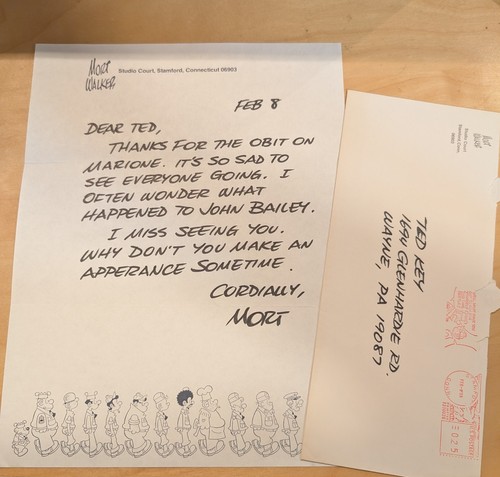 MORT
WALKER
Studio Court, Stamford, Connecticut 06903
FEB 8
DEAR TED,
THANKS FOR THE OBIT ON
MARIONE. IT'S SO SAD TO
SEE EVERYONE GOING. I
OFTEN WONDER WHAT
HAPPENED TO JOHN BAILEY.
I MISS SEEING YOU.
WHY DON'T YOU MAKE AN
APPERANCE SOMETIME.
CORDIALLY,
MORT
TED KEY
1694 GLENHARDIE RD.
WAYNE, PA 19087